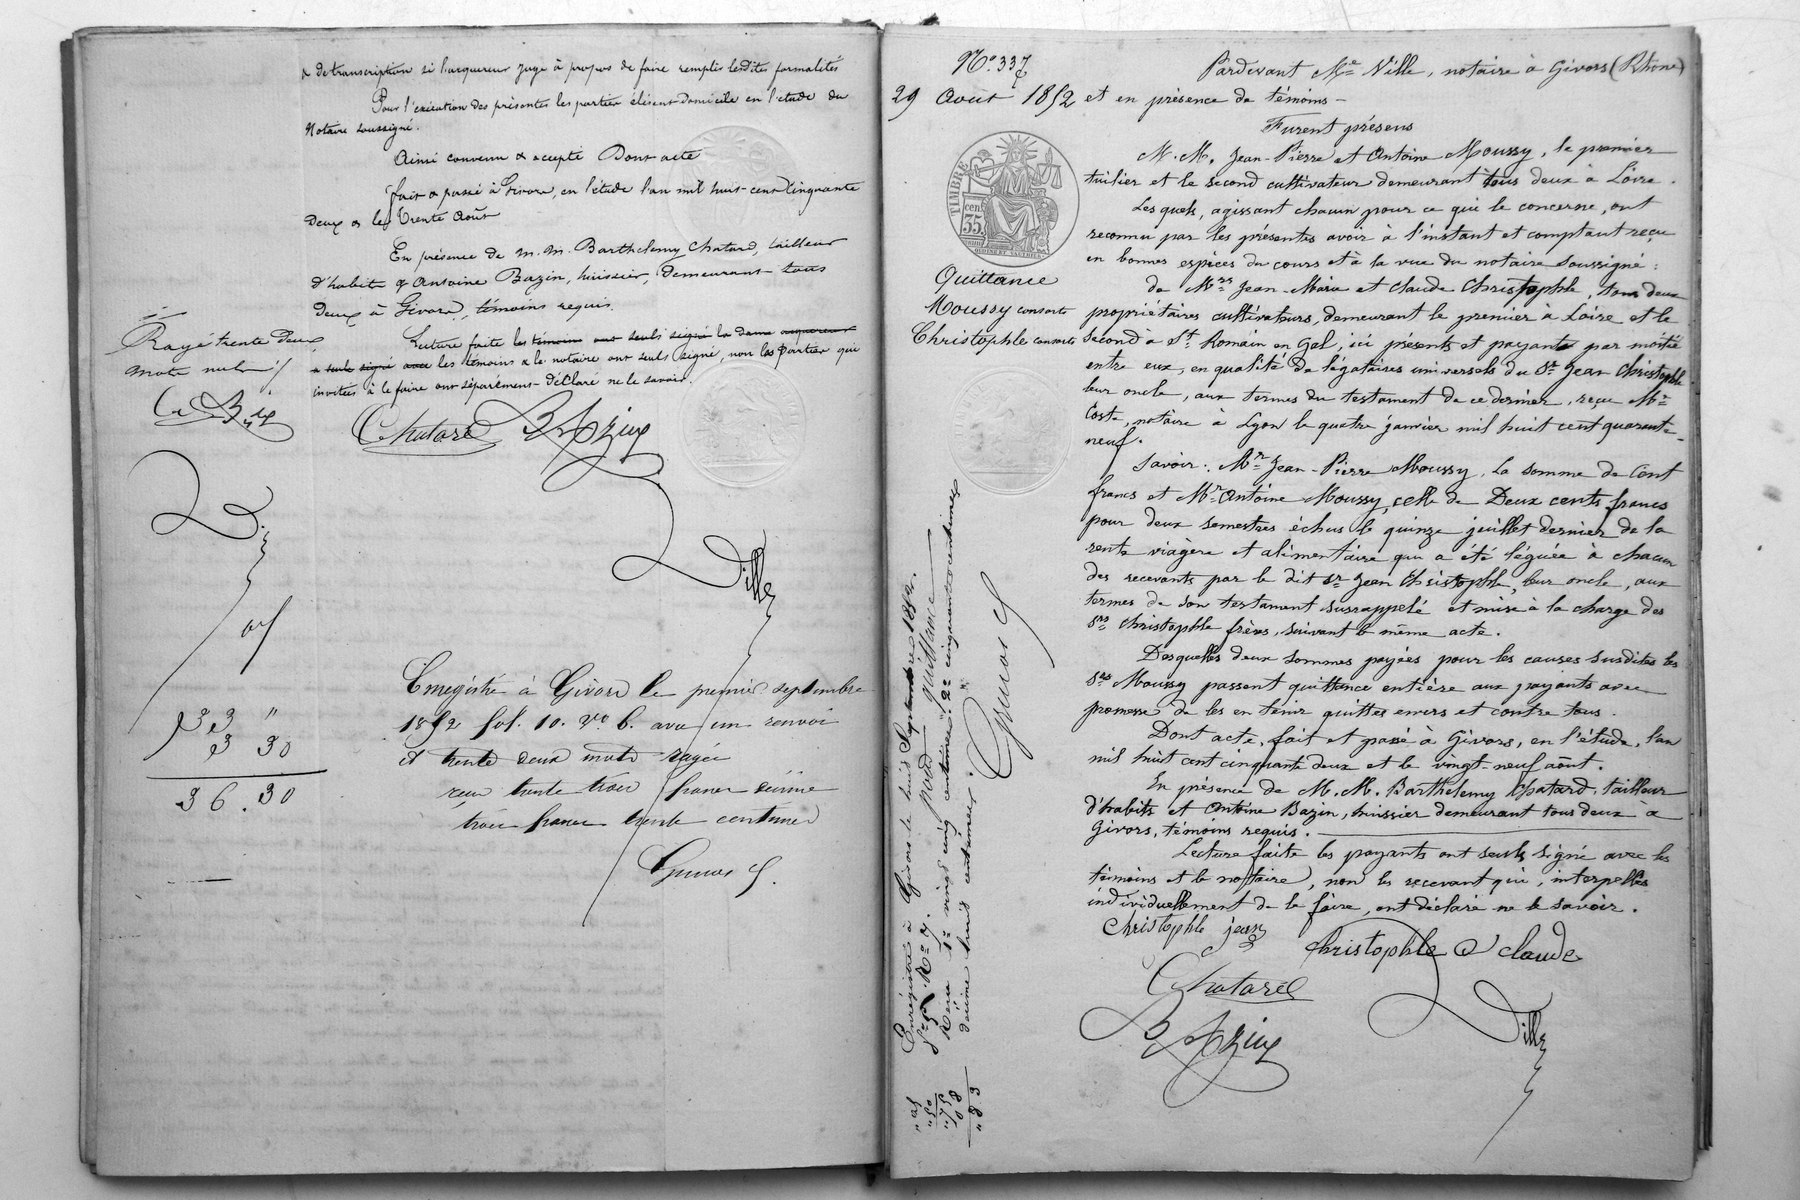 & de transcription si l'acquereur juge à propos de faire remplir lesdites formalités
Pour l'exécution des présentes les parties élisent domicile en l'étude du
Notaire soussigné.
Ainsi convenu & accepté Dont acte
fait & passé à Givors, en l'étude l'an mil huit cent cinquante
Deux & le trente Août
En présence de m. m. Barthelemy Chatard, tailleur
d'habits & Antoine Bazin, huissier, demeurant tous
Deux à Givors, témoins requis.
Lecture faite les témoins ont seuls signé la dame acquereur
a seule signé avec les témoins & le notaire ont seuls signé, non les parties qui
invitées à le faire ont séparément déclaré ne le savoir.
Rayé trente deux
mots nuls
C. B.
Chatard Bazin
Ville
Enregistré à Givors le premier septembre
1852 fol. 10. vo 6. avec un renvoi
et trente deux mots rayés
reçu trente trois francs décime
trois francs trente centimes
33 "
3 30
36.30
No. 337
29 Août 1852
TIMBRE
35 cen
Quittance
Moussy consorts
Christophle consorts
Pardevant Me Ville, notaire à Givors (Rhône)
et en présence de témoins
Furent présens
M. M. Jean-Pierre et Antoine Moussy, le premier
tuilier et le second cultivateur demeurant tous deux à Loire.
Lesquels, agissant chacun pour ce qui le concerne, ont
reconnu par les présentes avoir à l'instant et comptant reçu
en bonnes espèces du cours et à la vue du notaire soussigné :
de Mrs Jean-Marie et Claude Christophle, tous deux
propriétaires cultivateurs, demeurant le premier à Loire et le
second à St. Romain en Gal, ici présents et payants par moitié
entre eux, en qualité de légataires universels du Sr Jean Christophle
leur oncle, aux termes du testament de ce dernier, reçu Me
Coste, notaire à Lyon le quatre janvier mil huit cent quarante-
neuf.
Savoir : Mr Jean-Pierre Moussy, la somme de Cent
francs et Mr Antoine Moussy, celle de Deux cents francs
pour deux semestres échus le quinze juillet dernier de la
rente viagère et alimentaire qui a été léguée à chacun
des recevants par le dit Sr Jean Christophle, leur oncle, aux
termes de son testament susrappelé et mise à la charge des
Srs Christophle frères, suivant le même acte.
Desquelles deux sommes payées pour les causes susdites les
Srs Moussy passent quittance entière aux payants avec
promesse de les en tenir quittes envers et contre tous.
Dont acte, fait et passé à Givors, en l'étude, l'an
mil huit cent cinquante deux et le vingt-neuf août.
En présence de M. M. Barthélemy Chatard, tailleur
d'habits et Antoine Bazin, huissier demeurant tous deux à
Givors, témoins requis.
Lecture faite les payants ont seuls signé avec les
témoins et le notaire, non les recevant qui, interpellés
individuellement de le faire, ont déclaré ne le savoir.
Christophle jean
Christophle claude
Chatard
Bazin
Ville
Enregistré à Givors le huit Septembre 1852.
Reçu 1° vingt cinq centimes pour quittance 2° cinquante centimes
décime huit centimes
" 25
" 50
" 75
08
" 83